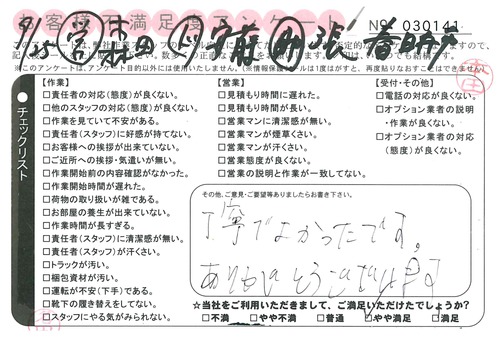 お客様不満足度アンケート
№ 030141
9/15
※このアンケートは、アンケート目的以外には使用いたしません。
チェックリスト
【作業】
□責任者の対応(態度)が良くない。
□他のスタッフの対応(態度)が良くない。
□作業を見ていて不安がある。
□責任者(スタッフ)に好感が持てない。
□お客様への挨拶が出来ていない。
□ご近所への挨拶・気遣いが無い。
□作業開始前の内容確認がなかった。
□作業開始時間が遅れた。
□荷物の取り扱いが雑である。
□お部屋の養生が出来ていない。
□作業時間が長すぎる。
□責任者(スタッフ)に清潔感が無い。
□責任者(スタッフ)が汗くさい。
□トラックが汚い。
□梱包資材が汚い。
□運転が不安(下手)である。
□靴下の履き替えをしてない。
□スタッフにやる気がみられない。
【営業】
□見積もり時間に遅れた。
□見積もり時間が長い。
□営業マンに清潔感が無い。
□営業マンが煙草くさい。
□営業マンが汗くさい。
□営業態度が良くない。
□営業の説明と作業が一致してない。
【受付・その他】
□電話の対応が良くない。
□オプション業者の説明
・作業が良くない。
□オプション業者の対応
(態度)が良くない。
その他、ご意見・ご要望等ありましたらお書き下さい。
丁寧でよかったです。
ありがとうございます
☆当社をご利用いただきまして、ご満足いただけたでしょうか?
□不満 □やや不満 □普通 □やや満足 □満足